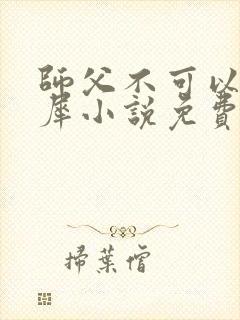 師父不可以
犀小說免費
掃葉僧